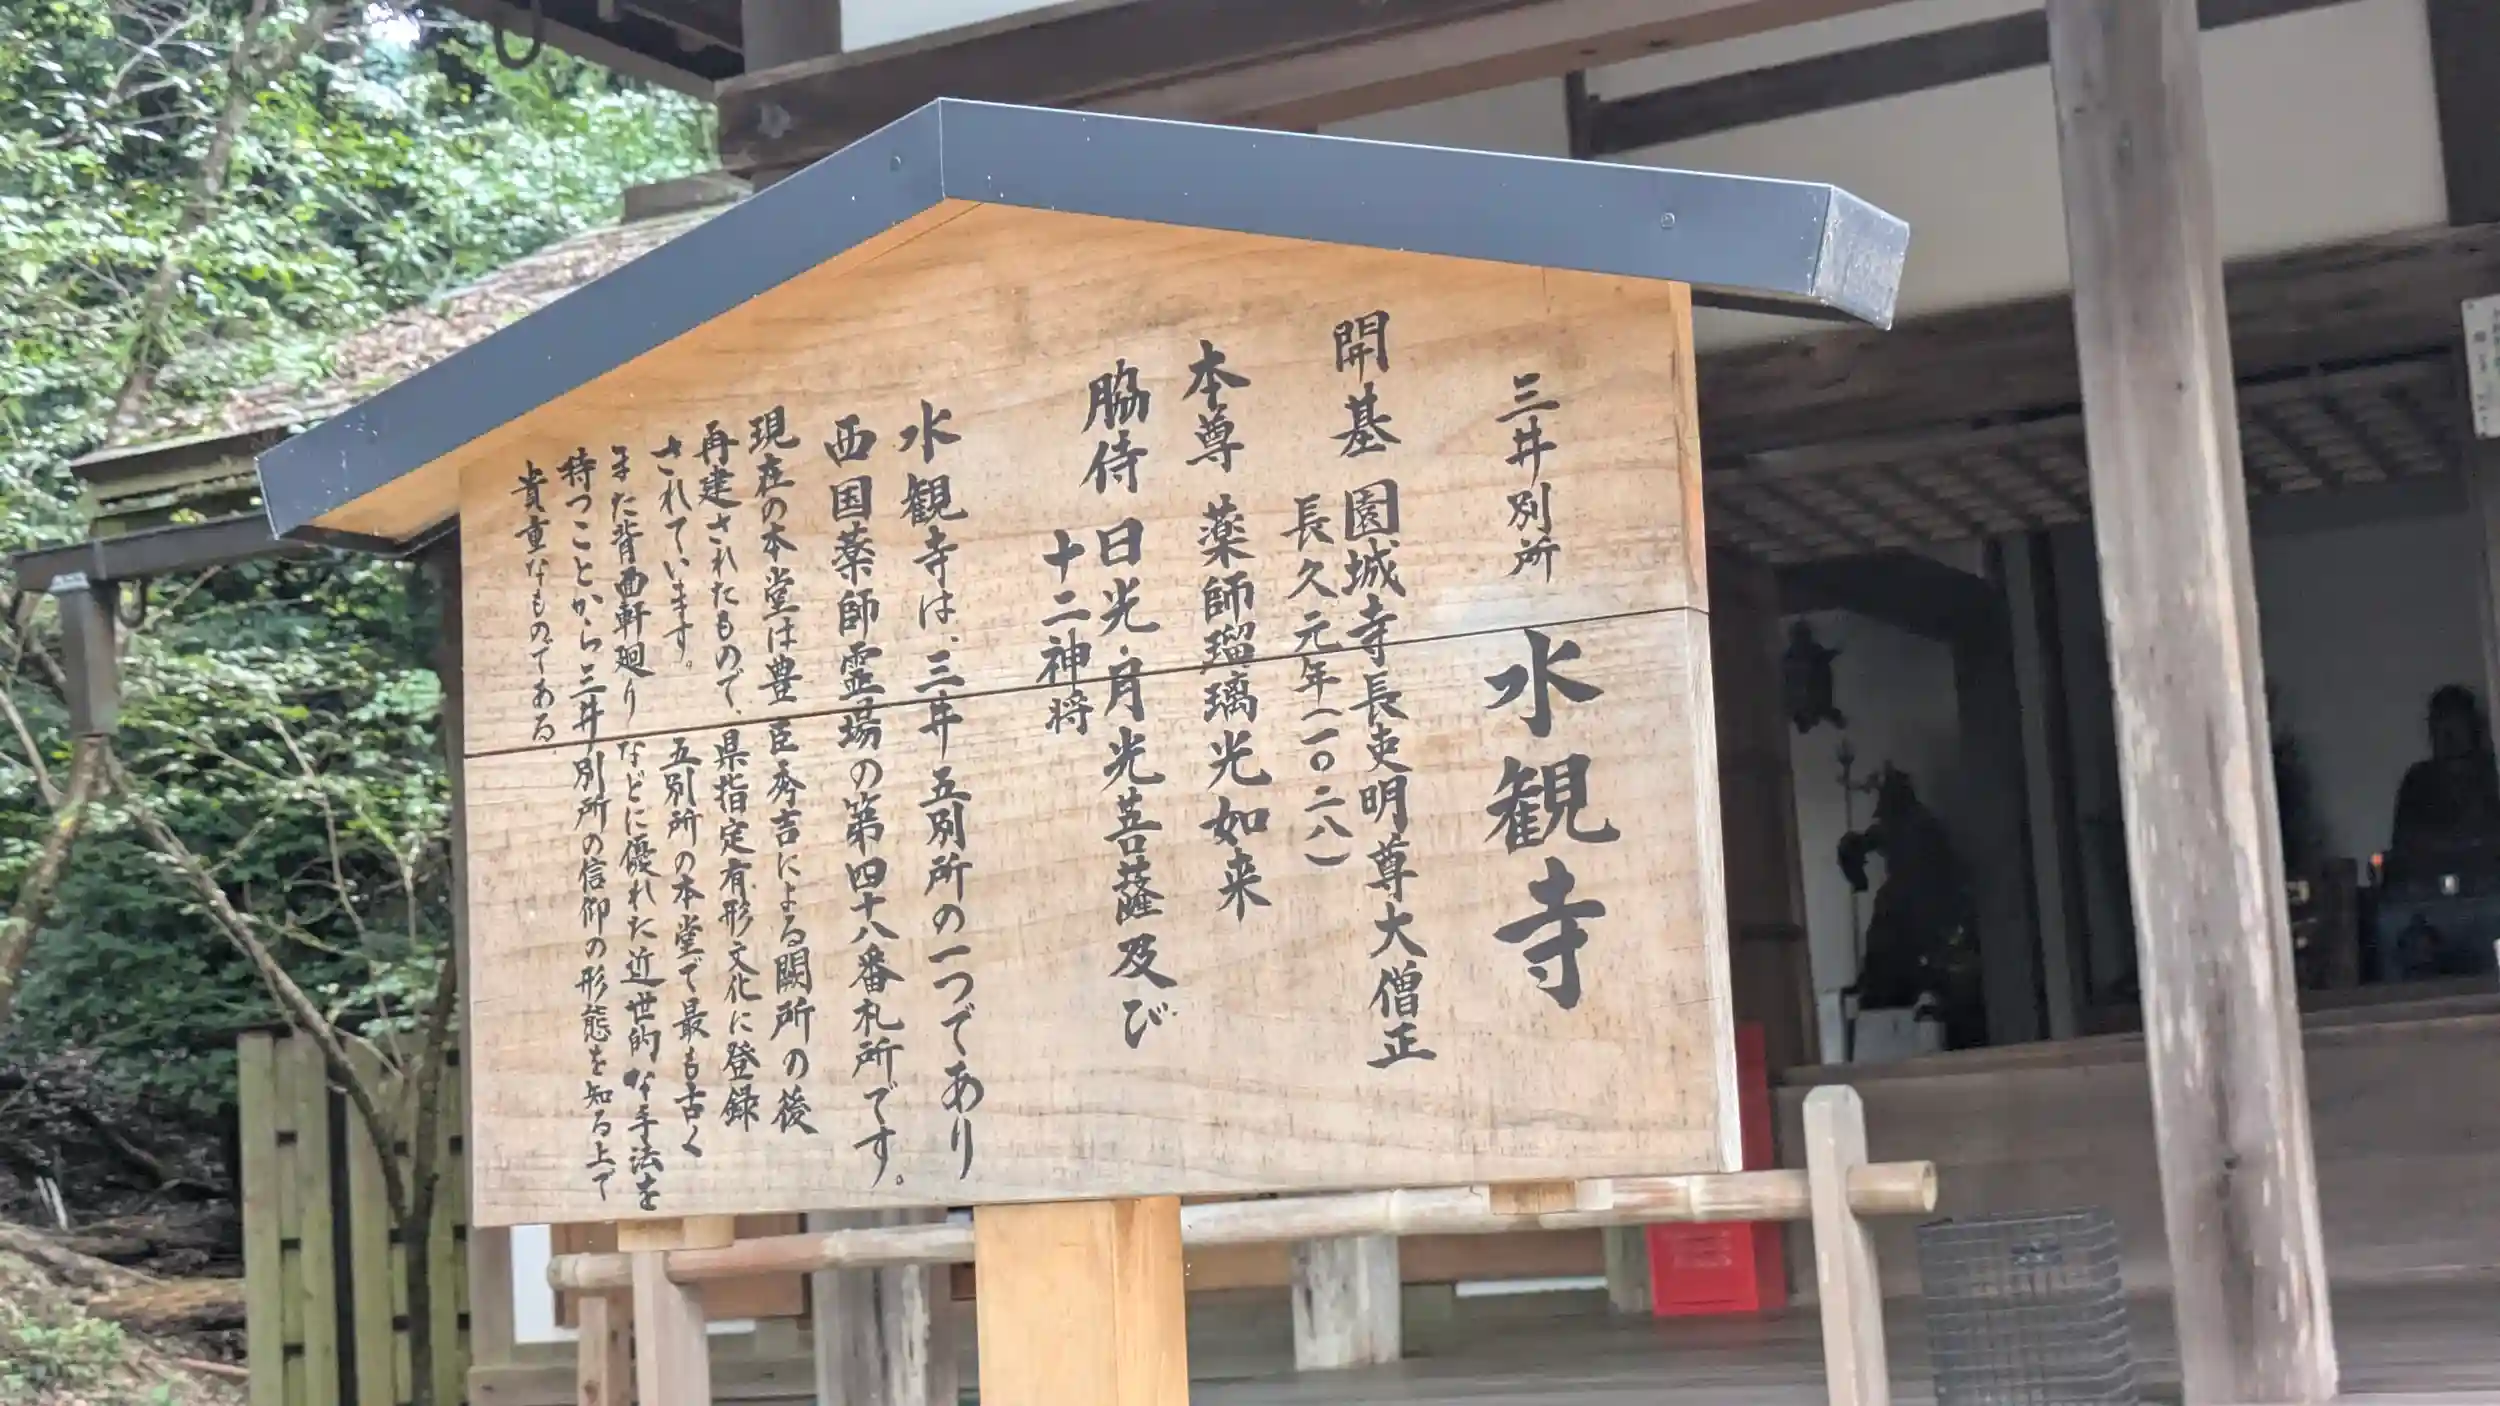 三井別所 水観寺
開基 園城寺長吏明尊大僧正
長久元年(一〇二八)
本尊 薬師瑠璃光如来
脇侍 日光・月光菩薩及び
十二神将
水観寺は、三井五別所の一つであり
西国薬師霊場の第四十八番札所です。
現在の本堂は豊臣秀吉による闕所の後
再建されたもので、県指定有形文化に登録
されています。五別所の本堂で最も古く
また背面軒廻りなどに優れた近世的な手法を
持つことから三井別所の信仰の形態を知る上で
貴重なものである。